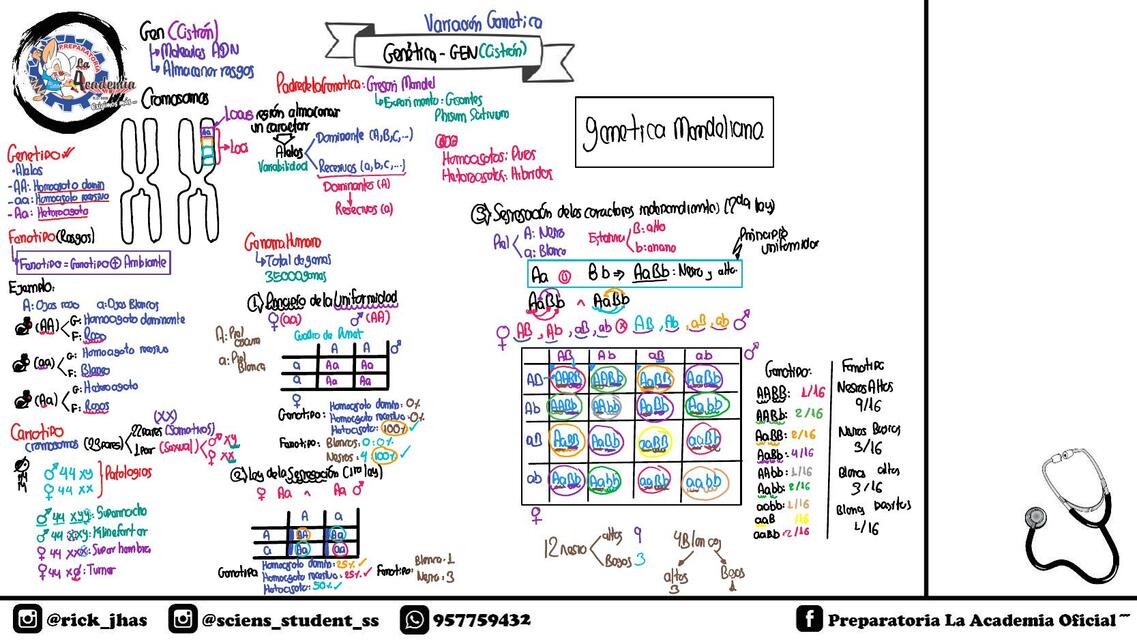 Variación Genetica
Genética - GEN (Cistrón)
PREPARATORIA
La Academia
Gen (Cistrón)
Moleculas ADN
Almacenar rasgos
Cromosomas
Locus región almacenar un caracter
Loci
Alelos
Variabilidad
Dominante (A,B,C,...)
Recesivos (a,b,c,...)
Dominantes (A)
Resecivos (a)
Padre de la Genetica: Gregori Mendel
Experimento: Gisantes
Phisum Sativum
Homocigotos: Puros
Heterocigotos: Hibridos
genetica Mendeliana
Genotipo
• Alelos
- AA: Homocigoto domin
- aa: Homocigoto recesivo
- Aa: Heterocigoto
Fenotipo (Rasgos)
Fenotipo = Genotipo + Ambiente
Ejemplo:
A: Ojos rojo a: Ojos Blancos
(AA) G: Homocigoto dominante
F: Rojos
(aa) G: Homocigoto recesivo
F: Blanco
(Aa) G: Heterocigoto
F: Rojos
Cariotipo
cromosomas (23 pares)
22 pares (Somaticos)
1 par (Sexual)
(XX)
♂ xy
♀ xx
♂ 44 xy
♀ 44 xx
Patologias
♂ 44 xyy: Supermacho
♂ 44 xxy: Klinefertar
♀ 44 xxx: Super hembra
♀ 44 xø: Turner
Genoma Humano
Total de genes
35000 genes
① Principio de la Uniformidad
♀ (aa) ♂ (AA)
A: Piel oscura
a: Piel Blanca
Cuadro de Punet
A A ♂
a Aa Aa
a Aa Aa
♀
Genotipo: Homocigoto domin: 0%
Homocigoto recesivo: 0%
Heterocigoto: 100% ✓
Fenotipo: Blancos: 0: 0%
Negros: 4 100% ✓
② Ley de la Segregación (1ra ley)
♀ Aa ^ Aa ♂
A a
A AA Aa
a Aa aa
Genotipo Homocigoto domin: 25% ✓
Homocigoto recesivo: 25% ✓
Heterocigoto: 50% ✓
Fenotipo: Blanco: 1
Negro: 3
③ Segregación de los caracteres independientes (2da ley)
Piel A: Negro
a: Blanco
Estatura B: alto
b: enano
Principio uniformidad
Aa Bb ⇒ AaBb: Negro y alto
AaBb ^ AaBb
♀ AB, Ab, aB, ab ⊗ AB, Ab, aB, ab ♂
AB Ab aB ab ♂
AB AABB AABb AaBB AaBb
Ab AABb AAbb AaBb Aabb
aB AaBB AaBb aaBB aaBb
ab AaBb Aabb aaBb aabb
♀
Genotipo:
AABB: 1/16
AABb: 2/16
AaBB: 2/16
AaBb: 4/16
AAbb: 1/16
Aabb: 2/16
aabb: 1/16
aaB 1/16
aaBb: 2/16
Fenotipo
Negros Altos
9/16
Negros Bajos
3/16
Blanco altos
3/16
Blanco bajitos
1/16
12 negro altos 9
Bajos 3
4 Blancos
altos 3
Bajos 1
@rick_jhas
@sciens_student_ss
957759432
Preparatoria La Academia Oficial